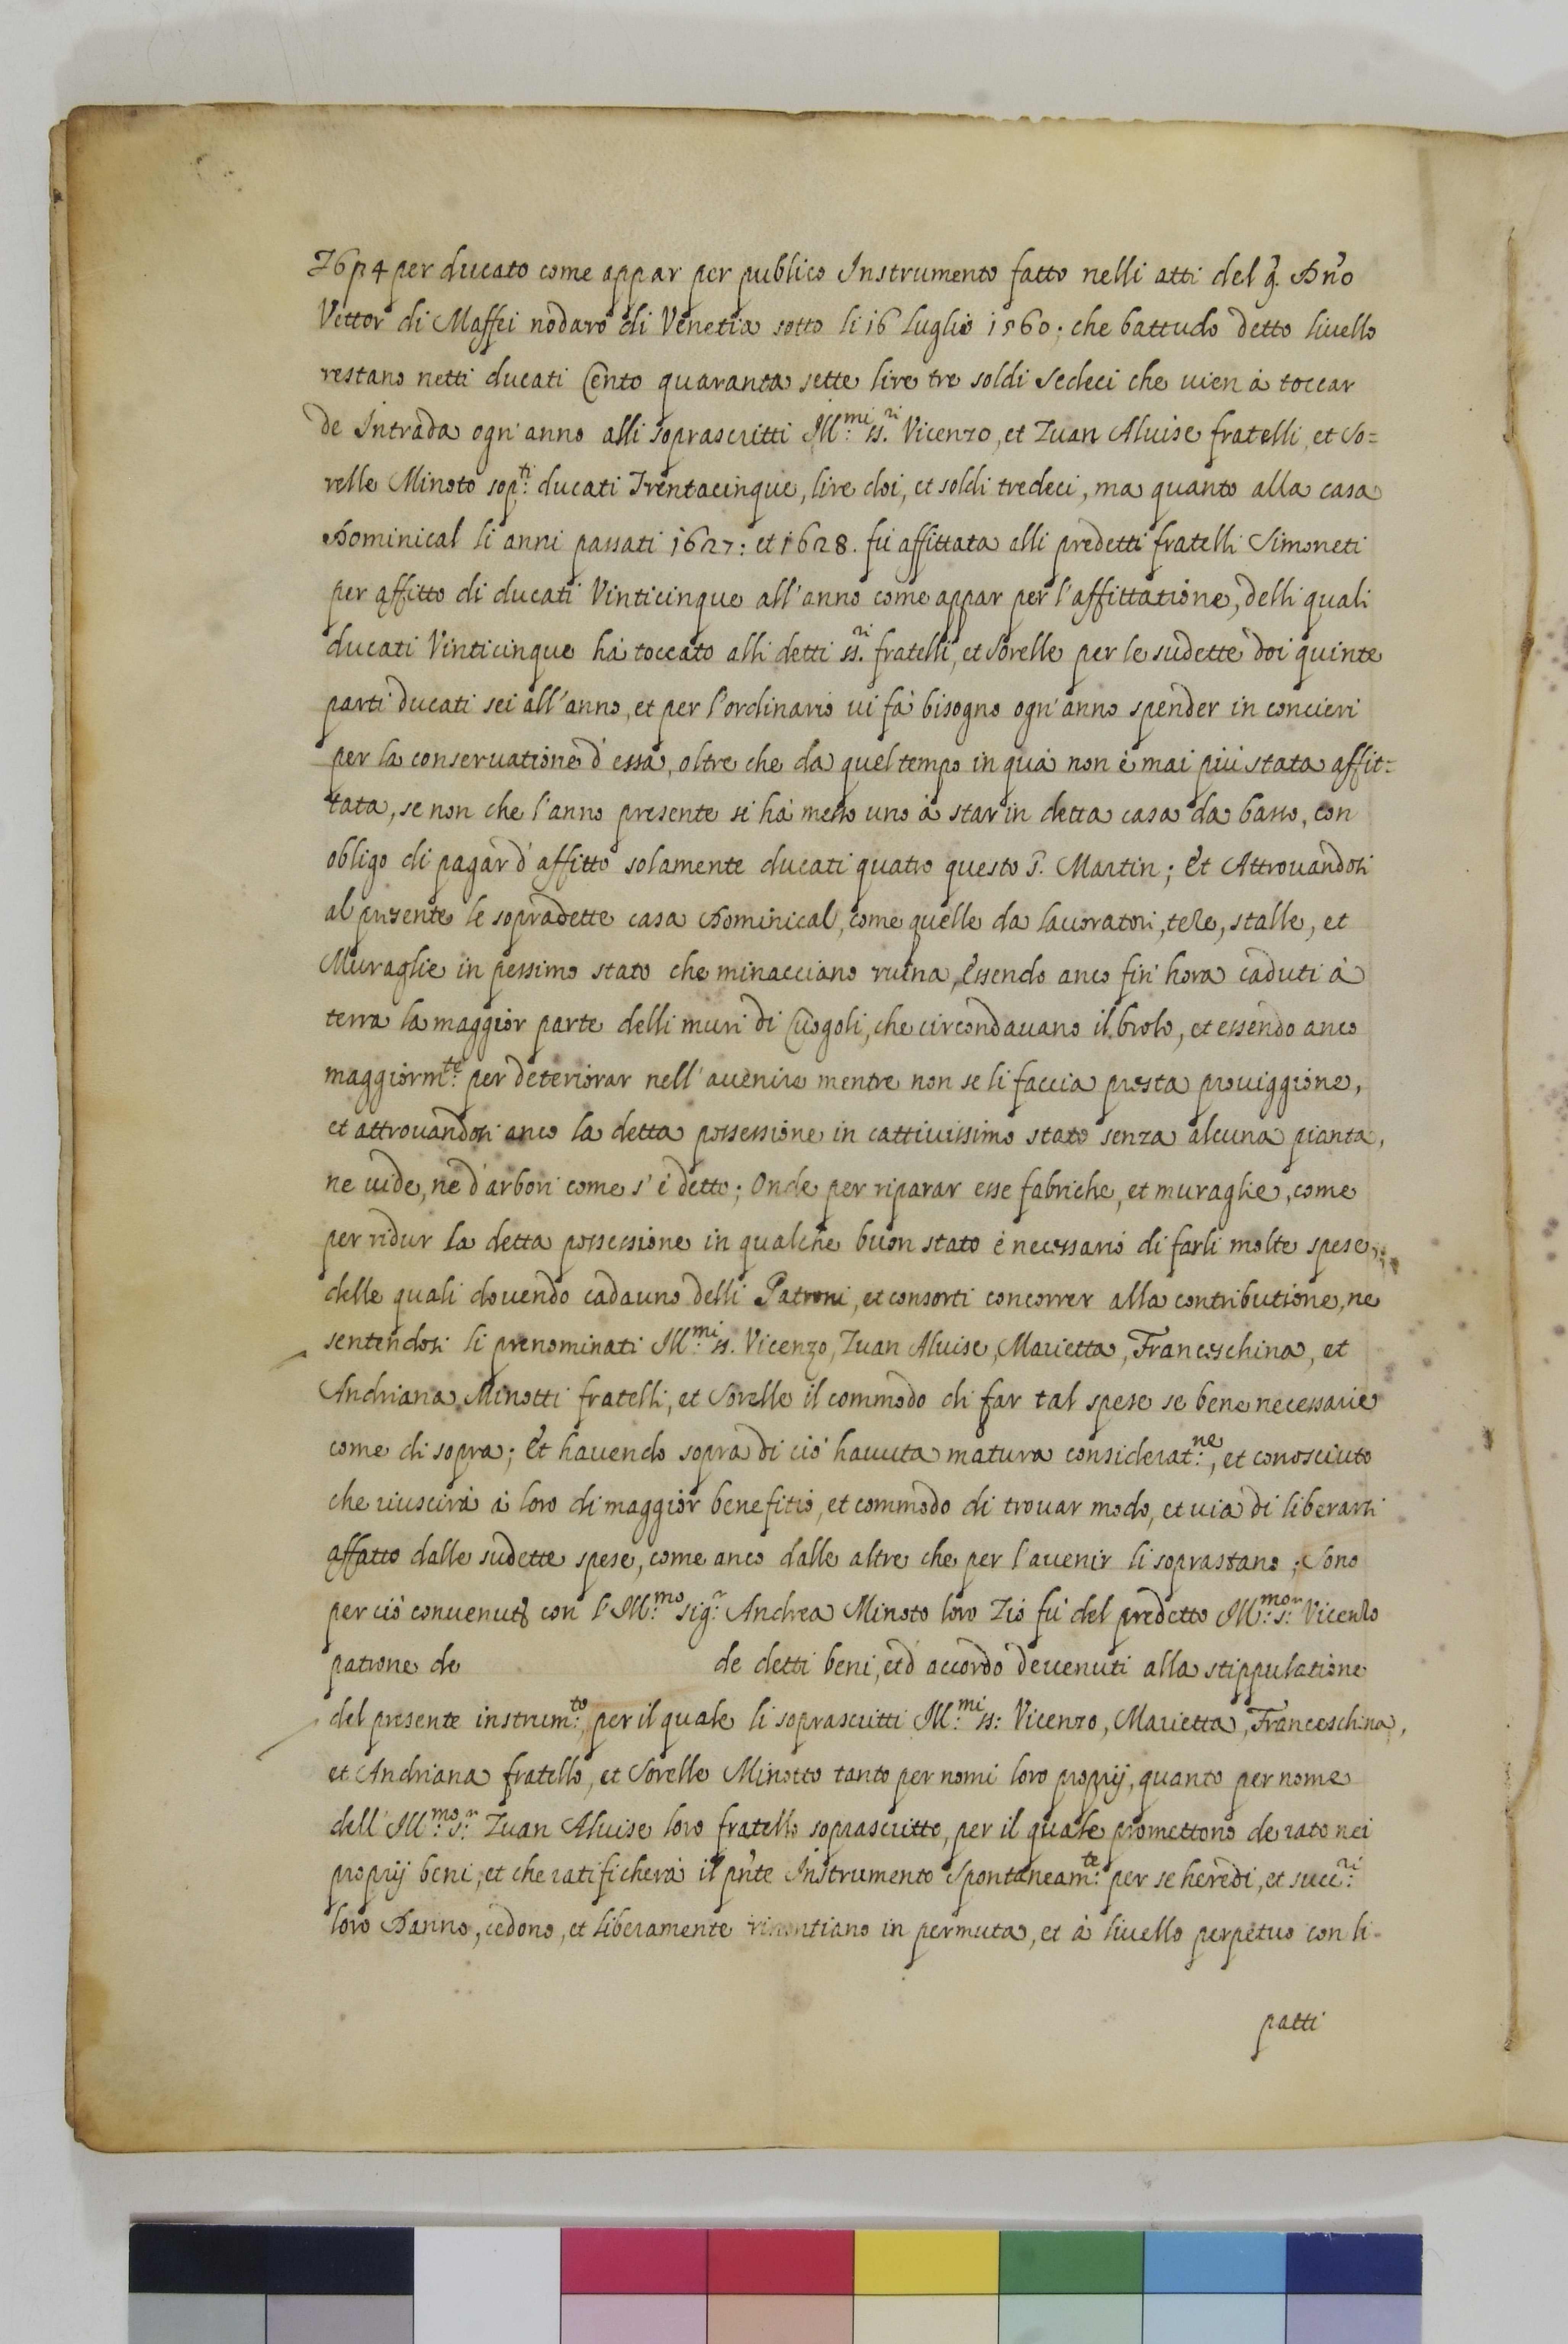 £6 p 4 per ducato come appar per publico Instrumento fatto nelli atti del q. Dno
Vettor di Maffei nodaro di Venetia sotto li 16 luglio 1560. che battudo detto liuello
restano netti ducati Cento quaranta sette lire tre soldi sedeci che uien à toccar
de Intrada ogn'anno alli soprascritti Ill:mi ss.ri Vicenzo, et Zuan Aluise fratelli, et so=
relle Minoto sop:ti ducati Trentacinque, lire doi, et soldi tredeci, ma quanto alla casa
Dominical li anni passati 1627: et 1628. fù affittata alli predetti fratelli Simoneti
per affitto di ducati Vinticinque all'anno come appar per l'affittatione, delli quali
ducati Vinticinque hà toccato alli detti ss.ri fratelli, et sorelle per le sudette doi quinte
parti ducati sei all'anno, et per l'ordinario ui fà bisogno ogn'anno spender in concieri
per la conseruatione d'essa, oltre che da quel tempo in quà non è mai più stata affit=
tata, se non che l'anno presente si hà messo uno à star in detta casa da basso, con
obligo di pagar d'affitto solamente ducati quatro questo S. Martin; Et Attrouandosi
al presente le sopradette casa Dominical, come quelle da lauoratori, teze, stalle, et
Muraglie in pessimo stato che minacciano ruina, Essendo anco fin'hora caduti à
terra la maggior parte delli muri di Cuogoli, che circondauano il brolo, et essendo anco
maggiorm:te per deteriorar nell'auenire mentre non se li faccia presta prouiggione,
et attrouandosi anco la detta possessione in cattiuissimo stato senza alcuna pianta,
ne uide, ne d'arbori come s'è detto; Onde per riparar esse fabriche, et muraglie, come
per ridur la detta possessione in qualche buon stato è necessario di farli molte spese,
delle quali douendo cadauno delli Patroni, et consorti concorrer alla contributione, ne
sentendosi li prenominati Ill:mi ss. Vicenzo, Zuan Aluise, Marietta, Franceschina, et
Andriana Minotti fratelli, et sorelle il commodo di far tal spese se bene necessarie
come di sopra; Et hauendo sopra di ciò hauuta matura considerat:ne, et conosciuto
che riuscirà à loro di maggior benefitio, et commodo di trouar modo, et uia di liberarsi
affatto dalle sudette spese, come anco dalle altre che per l'auenir li soprastano; Sono
per ciò conuenuti con l'Ill:mo sig:r Andrea Minoto loro Zio fù del predetto Ill:mo s:r Vicenzo
patrone de de detti beni, et d'accordo deuenuti alla stippulatione
del presente instrum:to, per il quale li soprascritti Ill:mi ss: Vicenzo, Marietta, Franceschina,
et Andriana fratello, et sorelle Minotto tanto per nomi loro proprij, quanto per nome
dell'Ill:mo s:r Zuan Aluise loro fratello soprascritto, per il quale promettono de rato nei
proprij beni, et che ratificherà il pnte Instrumento spontaneam:te per se heredi, et succ:ri
loro Danno, cedono, et liberamente rinontiano in permuta, et à liuello perpetuo con li
patti